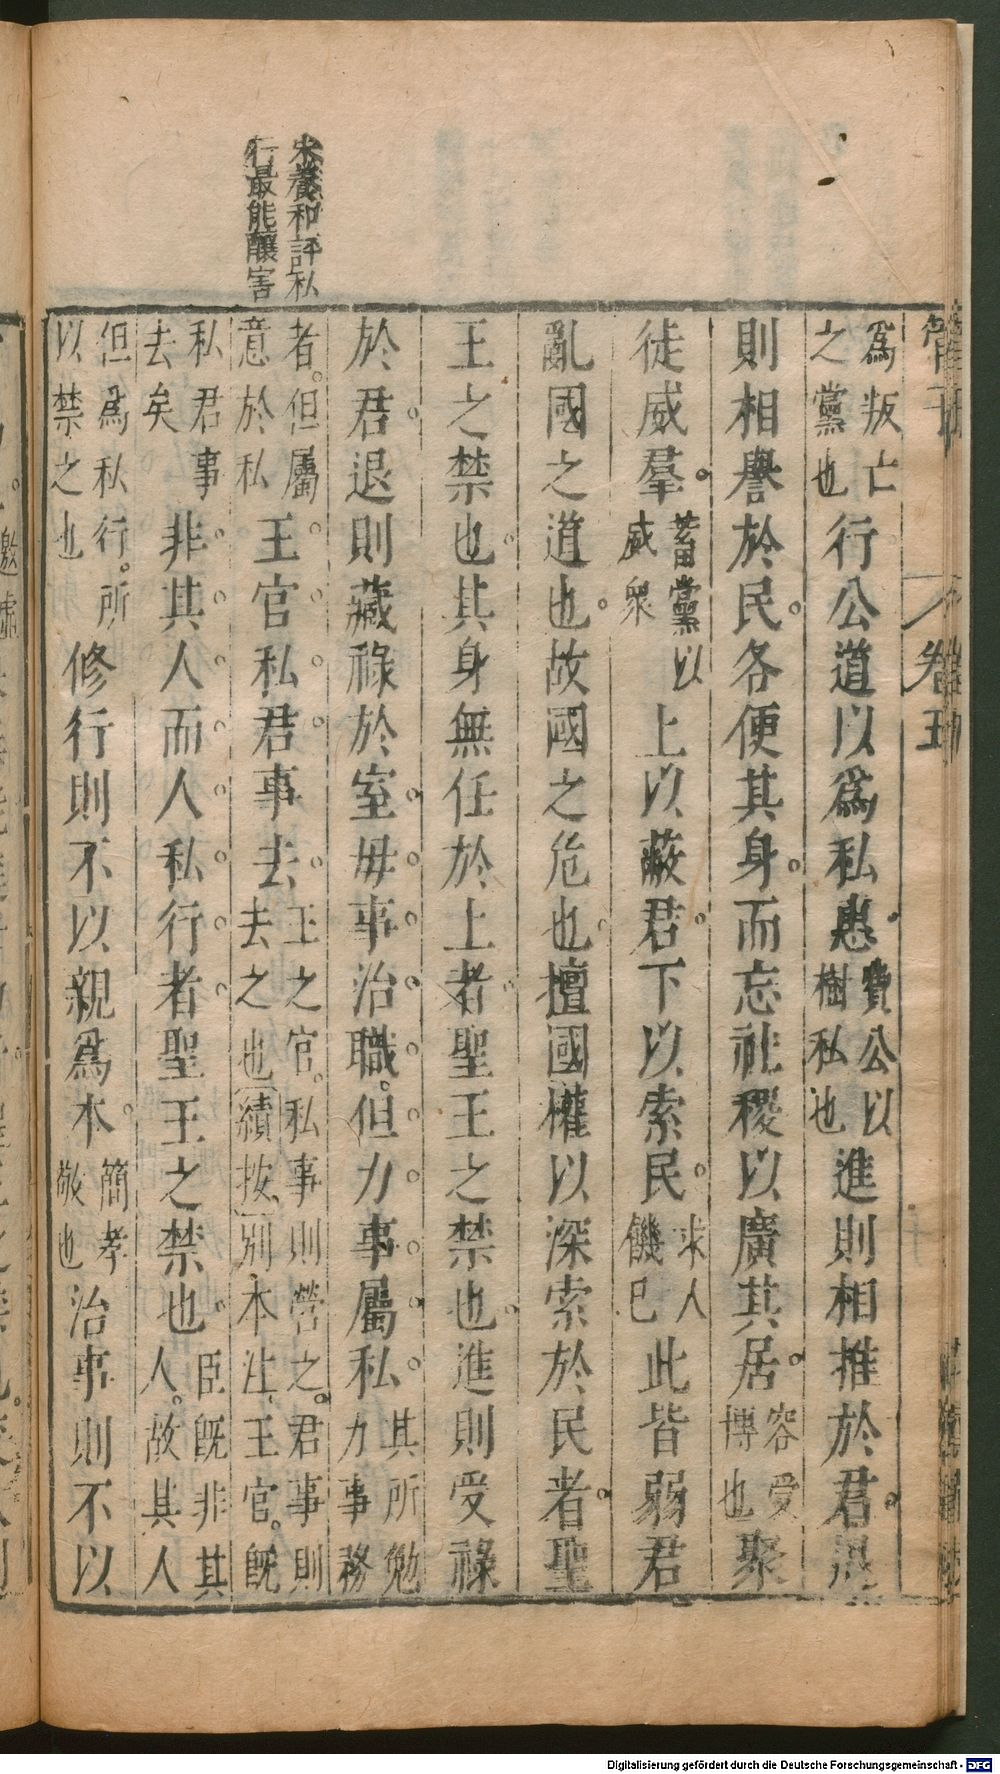 朱養和評私
行最能釀害
管子
卷五
爲叛亡
之黨也
行公道以爲私惠
費公以
樹私也
進則相推於君退
則相譽於民各便其身而忘社稷以廣其居
容受
博也
聚
徒威羣
蓄黨以
威衆
上以蔽君下以索民
求人
饑已
此皆弱君
亂國之道也故國之危也擅國權以深索於民者聖
王之禁也其身無任於上者聖王之禁也進則受祿
於君退則藏祿於室毋事治職但力事屬私
其所勉
力事務
者但屬
意於私
王官私君事去
王之官私事則營之君事則
去之也續按別本注王官旣
私君事
去矣
非其人而人私行者聖王之禁也
臣旣非其
人故其人
但爲私行所
以禁之也
修行則不以親爲本
簡孝
敬也
治事則不以
Digitalisierung gefördert durch die Deutsche Forschungsgemeinschaft - DFG